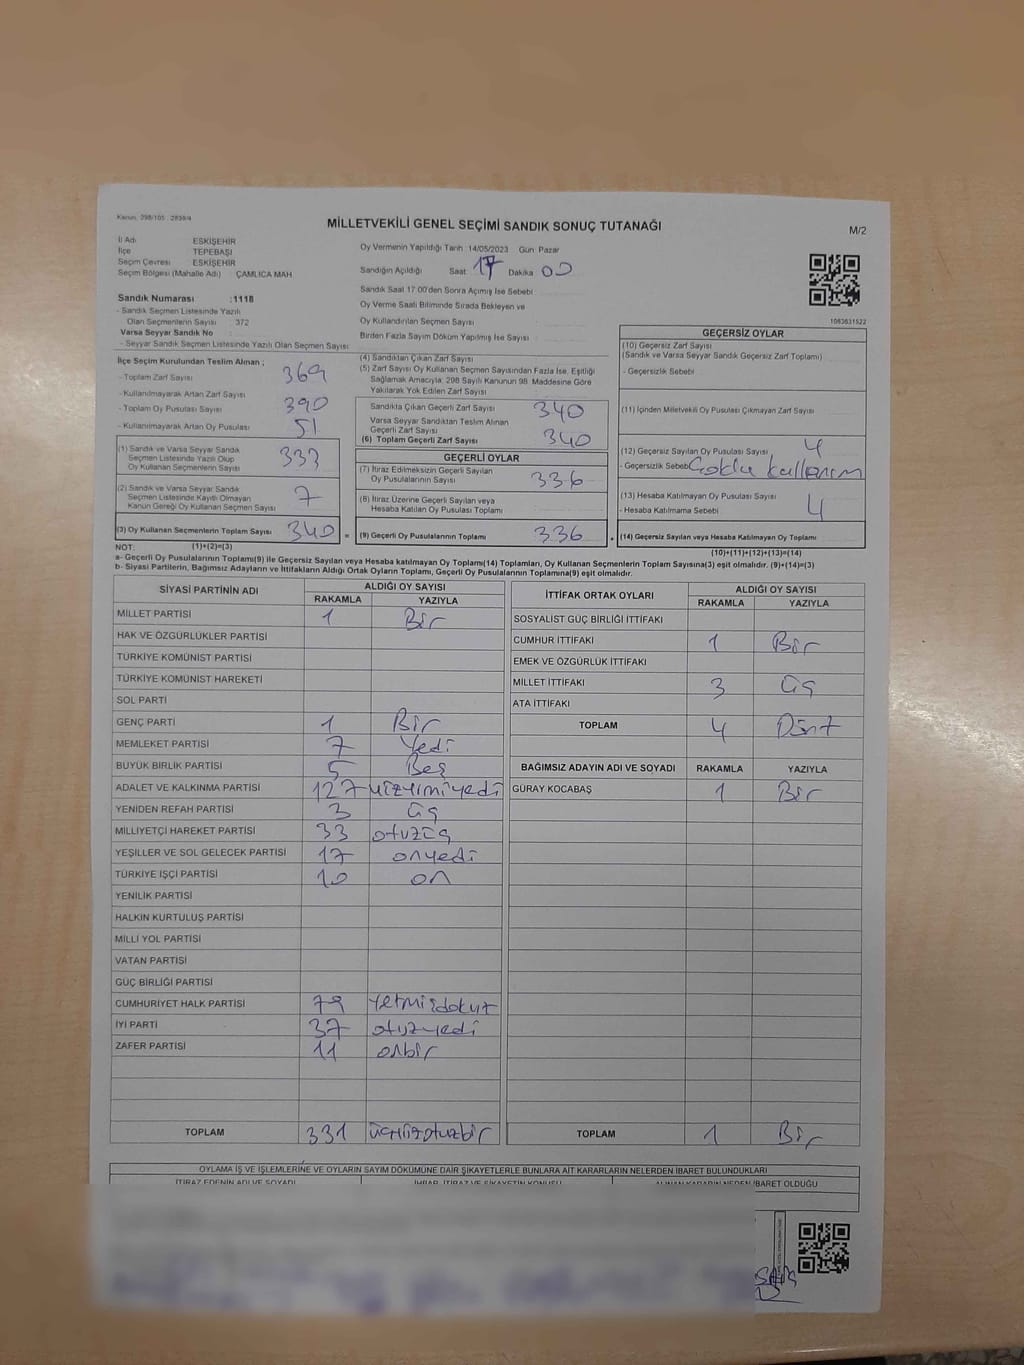 Kanun, 298/105 : 2839/4
MİLLETVEKİLİ GENEL SEÇİMİ SANDIK SONUÇ TUTANAĞI
M/2
İl Adı ESKİŞEHİR
İlçe TEPEBAŞI
Seçim Çevresi ESKİŞEHİR
Seçim Bölgesi (Mahalle Adı) : ÇAMLICA MAH
Sandık Numarası :1118
- Sandık Seçmen Listesinde Yazılı
Olan Seçmenlerin Sayısı 372
Varsa Seyyar Sandık No :
- Seyyar Sandık Seçmen Listesinde Yazılı Olan Seçmen Sayısı:
Oy Vermenin Yapıldığı Tarih :14/05/2023 Gün: Pazar
Sandığın Açıldığı Saat: 17 Dakika 00
Sandık Saat 17:00'den Sonra Açılmış İse Sebebi :
Oy Verme Saati Bitiminde Sırada Bekleyen ve
Oy Kullandırılan Seçmen Sayısı
Birden Fazla Sayım Döküm Yapılmış İse Sayısı :
1083631522
İlçe Seçim Kurulundan Teslim Alınan ;
- Toplam Zarf Sayısı 369
- Kullanılmayarak Artan Zarf Sayısı
- Toplam Oy Pusulası Sayısı 390
- Kullanılmayarak Artan Oy Pusulası 51
(1) Sandık ve Varsa Seyyar Sandık
Seçmen Listesinde Yazılı Olup
Oy Kullanan Seçmenlerin Sayısı 333
(2) Sandık ve Varsa Seyyar Sandık
Seçmen Listesinde Kayıtlı Olmayan
Kanun Gereği Oy Kullanan Seçmen Sayısı 7
(3) Oy Kullanan Seçmenlerin Toplam Sayısı 340 =
(4) Sandıktan Çıkan Zarf Sayısı
(5) Zarf Sayısı Oy Kullanan Seçmen Sayısından Fazla İse, Eşitliği
Sağlamak Amacıyla; 298 Sayılı Kanunun 98. Maddesine Göre
Yakılarak Yok Edilen Zarf Sayısı
Sandıkta Çıkan Geçerli Zarf Sayısı 340
Varsa Seyyar Sandıktan Teslim Alınan
Geçerli Zarf Sayısı
(6) Toplam Geçerli Zarf Sayısı 340
GEÇERLİ OYLAR
(7) İtiraz Edilmeksizin Geçerli Sayılan
Oy Pusulalarının Sayısı 336
(8) İtiraz Üzerine Geçerli Sayılan veya
Hesaba Katılan Oy Pusulası Toplamı
(9) Geçerli Oy Pusulalarının Toplamı 336 +
GEÇERSİZ OYLAR
(10) Geçersiz Zarf Sayısı
(Sandık ve Varsa Seyyar Sandık Geçersiz Zarf Toplamı)
- Geçersizlik Sebebi
(11) İçinden Milletvekili Oy Pusulası Çıkmayan Zarf Sayısı
(12) Geçersiz Sayılan Oy Pusulası Sayısı 4
- Geçersizlik Sebebi Çoklu kullanım
(13) Hesaba Katılmayan Oy Pusulası Sayısı
- Hesaba Katılmama Sebebi 4
(14) Geçersiz Sayılan veya Hesaba Katılmayan Oy Toplamı
NOT: (1)+(2)=(3) (10)+(11)+(12)+(13)=(14)
a- Geçerli Oy Pusulalarının Toplamı(9) ile Geçersiz Sayılan veya Hesaba katılmayan Oy Toplamı(14) Toplamları, Oy Kullanan Seçmenlerin Toplam Sayısına(3) eşit olmalıdır. (9)+(14)=(3)
b- Siyasi Partilerin, Bağımsız Adayların ve İttifakların Aldığı Ortak Oyların Toplamı, Geçerli Oy Pusulalarının Toplamına(9) eşit olmalıdır.
SİYASİ PARTİNİN ADI ALDIĞI OY SAYISI
RAKAMLA YAZIYLA
MİLLET PARTİSİ 1 Bir
HAK VE ÖZGÜRLÜKLER PARTİSİ
TÜRKİYE KOMÜNİST PARTİSİ
TÜRKİYE KOMÜNİST HAREKETİ
SOL PARTİ
GENÇ PARTİ 1 Bir
MEMLEKET PARTİSİ 7 Yedi
BÜYÜK BİRLİK PARTİSİ 5 Beş
ADALET VE KALKINMA PARTİSİ 127 yüzyirmiyedi
YENİDEN REFAH PARTİSİ 3 üç
MİLLİYETÇİ HAREKET PARTİSİ 33 otuzüç
YEŞİLLER VE SOL GELECEK PARTİSİ 17 onyedi
TÜRKİYE İŞÇİ PARTİSİ 10 on
YENİLİK PARTİSİ
HALKIN KURTULUŞ PARTİSİ
MİLLİ YOL PARTİSİ
VATAN PARTİSİ
GÜÇ BİRLİĞİ PARTİSİ
CUMHURİYET HALK PARTİSİ 79 yetmişdokuz
İYİ PARTİ 37 otuzyedi
ZAFER PARTİSİ 11 onbir
TOPLAM 331 üçyüzotuzbir
İTTİFAK ORTAK OYLARI ALDIĞI OY SAYISI
RAKAMLA YAZIYLA
SOSYALİST GÜÇ BİRLİĞİ İTTİFAKI
CUMHUR İTTİFAKI 1 Bir
EMEK VE ÖZGÜRLÜK İTTİFAKI
MİLLET İTTİFAKI 3 üç
ATA İTTİFAKI
TOPLAM 4 Dört
BAĞIMSIZ ADAYIN ADI VE SOYADI RAKAMLA YAZIYLA
GÜRAY KOCABAŞ 1 Bir
TOPLAM 1 Bir
OYLAMA İŞ VE İŞLEMLERİNE VE OYLARIN SAYIM DÖKÜMÜNE DAİR ŞİKAYETLERLE BUNLARA AİT KARARLARIN NELERDEN İBARET BULUNDUKLARI
İTİRAZ EDENİN ADI VE SOYADI İHBAR, İTİRAZ VE ŞİKAYETİN KONUSU ALINAN KARARIN NEDEN İBARET OLDUĞU